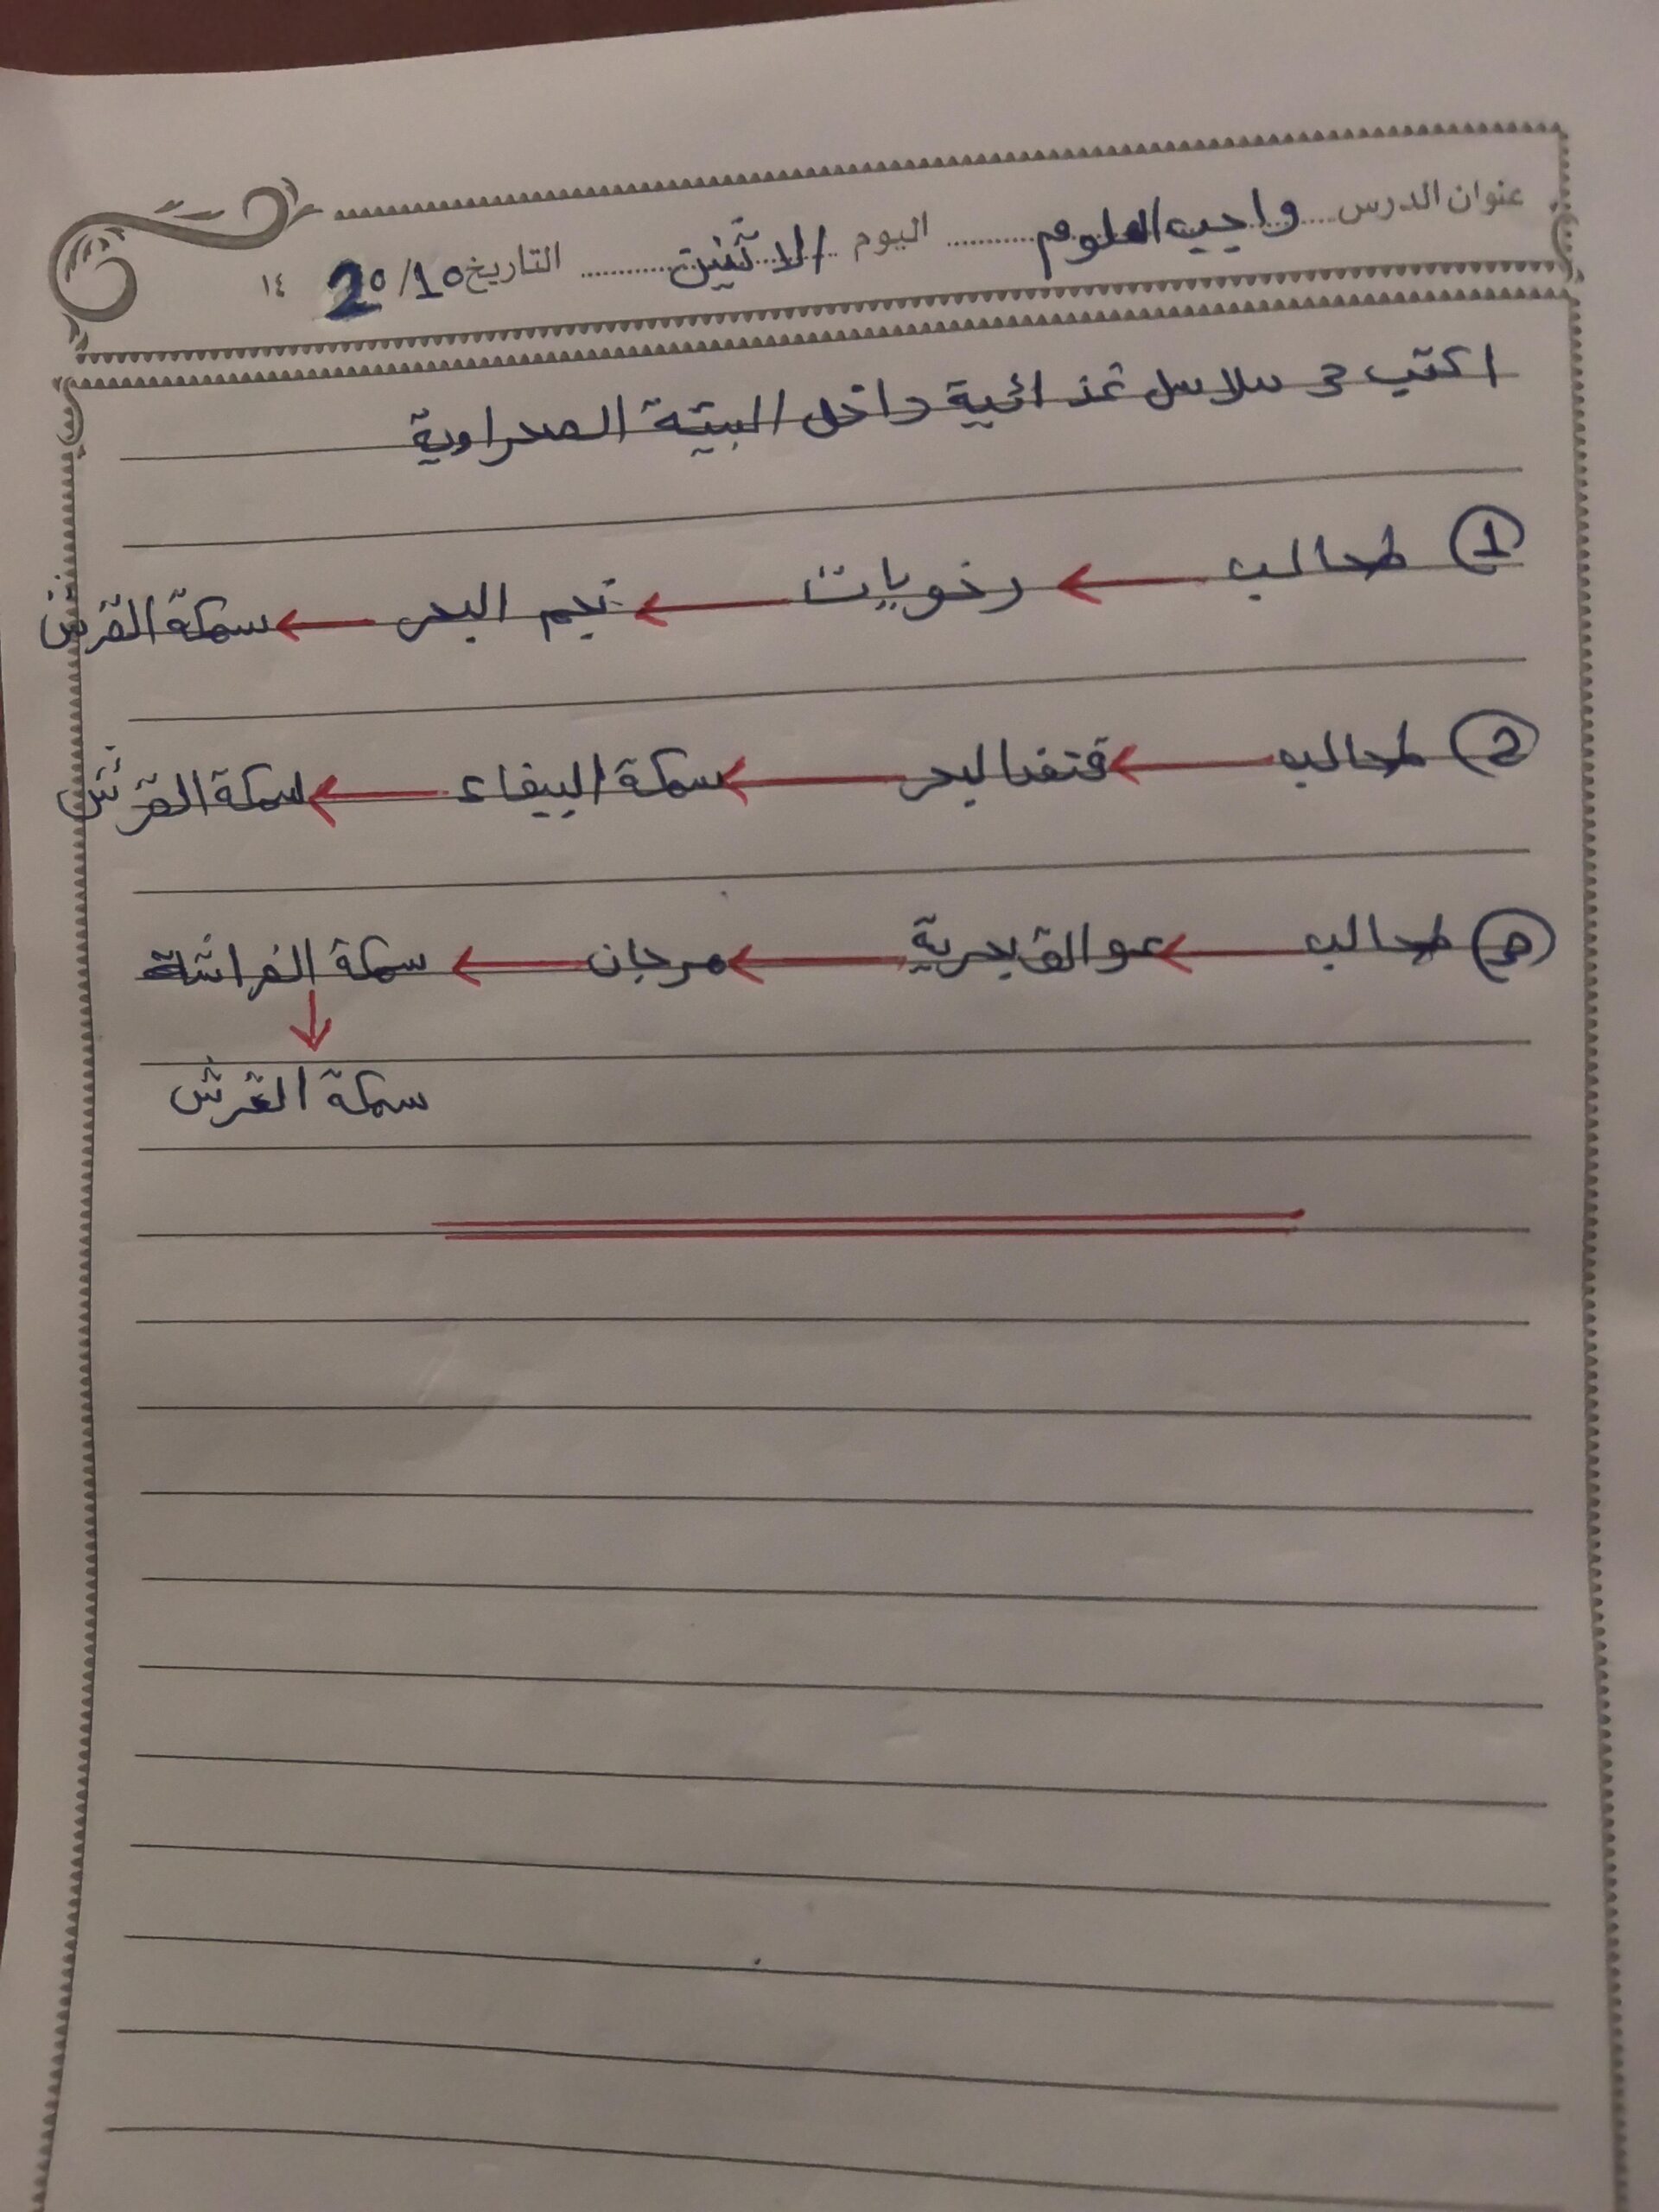 عنوان الدرس واجب العلوم اليوم الاثنين التاريخ 20/10 ١٤
اكتب 3 سلاسل غذائية داخل البيئة الصحراوية
1 طحالب ← رخويات ← نجم البحر ← سمكة القرش
2 طحالب ← قنفذ البحر ← سمكة الببغاء ← سمكة القرش
3 طحالب ← عوالق بحرية ← مرجان ← سمكة الفراشة
↓
سمكة القرش